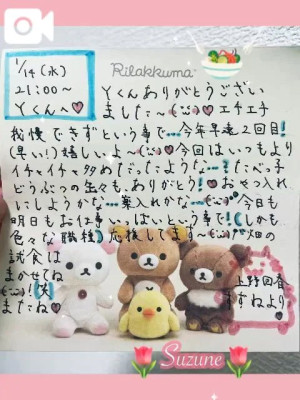 1/14(水)
21:00~
Yくんへ♡
Rilakkuma
Yくんありがとうござい
ました~♡エチエチ
我慢できずという事で…今年早速2回目!
(早い!)嬉しいよ~♡今回はいつもより
イチャイチャ多めだったような…?たべっ子
どうぶつの生々も、ありがとう!♡おせつ入れ
にしようかな…薬入れかな…今日も
明日もお仕事いっぱいという事で!(しかも
色々な職種)応援してます~♡畑の
試食は
まかせてね
!(笑)
またね♡
上野回春
すずねより
Suzune